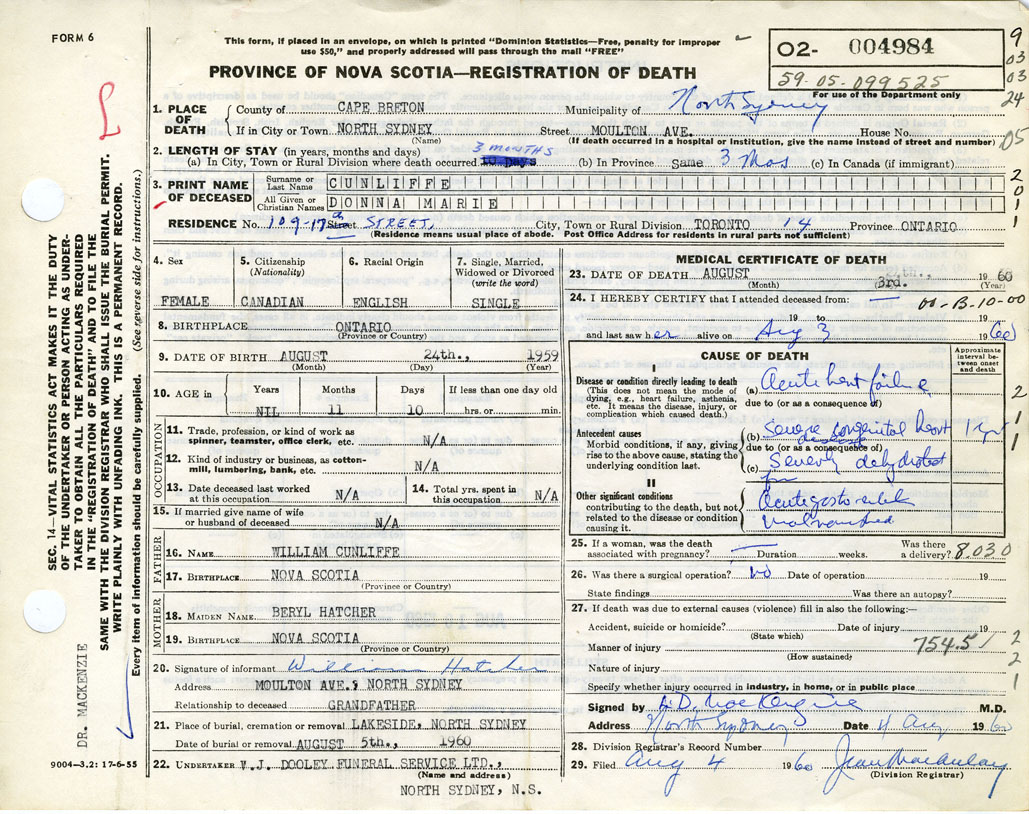 FORM 6
This form, if placed in an envelope, on which is printed "Dominion Statistics—Free, penalty for improper
use $50," and properly addressed will pass through the mail "FREE"
PROVINCE OF NOVA SCOTIA—REGISTRATION OF DEATH
02- 004984
59.05-099525
For use of the Department only
9
03
03
24
05
2
0
1
1
1. PLACE OF DEATH
County of CAPE BRETON Municipality of North Sydney
If in City or Town NORTH SYDNEY Street MOULTON AVE. House No.
(Name) (If death occurred in a hospital or institution, give the name instead of street and number)
2. LENGTH OF STAY (in years, months and days) 3 MONTHS
(a) In City, Town or Rural Division where death occurred (b) In Province Same 3 Mos (c) In Canada (if immigrant)
3. PRINT NAME OF DECEASED
Surname or Last Name CUNLIFFE
All Given or Christian Names DONNA MARIE
RESIDENCE No. 109-17th Street STREET, City, Town or Rural Division TORONTO 14 Province ONTARIO
(Residence means usual place of abode. Post Office Address for residents in rural parts not sufficient)
4. Sex FEMALE
5. Citizenship (Nationality) CANADIAN
6. Racial Origin ENGLISH
7. Single, Married, Widowed or Divorced (write the word) SINGLE
8. BIRTHPLACE ONTARIO
(Province or Country)
9. DATE OF BIRTH AUGUST 24th., 1959
(Month) (Day) (Year)
10. AGE in Years Months Days If less than one day old
NIL 11 10 hrs. or min.
OCCUPATION
11. Trade, profession, or kind of work as
spinner, teamster, office clerk, etc. N/A
12. Kind of industry or business, as cotton-
mill, lumbering, bank, etc. N/A
13. Date deceased last worked
at this occupation N/A
14. Total yrs. spent in
this occupation N/A
15. If married give name of wife
or husband of deceased N/A
FATHER
16. NAME WILLIAM CUNLIFFE
17. BIRTHPLACE NOVA SCOTIA
(Province or Country)
MOTHER
18. MAIDEN NAME BERYL HATCHER
19. BIRTHPLACE NOVA SCOTIA
(Province or Country)
20. Signature of informant William Hatcher
Address MOULTON AVE., NORTH SYDNEY
Relationship to deceased GRANDFATHER
21. Place of burial, cremation or removal LAKESIDE, NORTH SYDNEY
Date of burial or removal AUGUST 5th., 1960
22. UNDERTAKER V.J. DOOLEY FUNERAL SERVICE LTD.,
(Name and address)
NORTH SYDNEY, N.S.
MEDICAL CERTIFICATE OF DEATH
23. DATE OF DEATH AUGUST 3rd. 1960
(Month) (Year)
24. I HEREBY CERTIFY that I attended deceased from: 00-B-10-00
19 to 19
and last saw her alive on Aug 3 1960
CAUSE OF DEATH
Approximate interval between onset and death
I
Disease or condition directly leading to death
(This does not mean the mode of
dying, e.g., heart failure, asthenia,
etc. It means the disease, injury, or
complication which caused death.)
(a) Acute heart failure
due to (or as a consequence of)
Antecedent causes
Morbid conditions, if any, giving
rise to the above cause, stating the
underlying condition last.
(b) Severe congenital heart disease
due to (or as a consequence of)
(c) Severely
II
Other significant conditions
contributing to the death, but not
related to the disease or condition
causing it.
Acute
2
1
1
25. If a woman, was the death
associated with pregnancy? Duration weeks. Was there
a delivery? 8.030
26. Was there a surgical operation? No Date of operation 19
State findings Was there an autopsy?
27. If death was due to external causes (violence) fill in also the following:—
Accident, suicide or homicide? Date of injury 19
(State which)
Manner of injury 754.5
(How sustained)
Nature of injury
Specify whether injury occurred in industry, in home, or in public place
2
2
1
Signed by MacKenzie M.D.
Address North Sydney Date 4 Aug 1960
28. Division Registrar's Record Number
29. Filed Aug 4 1960 Jean
(Division Registrar)
SEC. 14—VITAL STATISTICS ACT MAKES IT THE DUTY
OF THE UNDERTAKER OR PERSON ACTING AS UNDER-
TAKER TO OBTAIN ALL THE PARTICULARS REQUIRED
IN THE "REGISTRATION OF DEATH" AND TO FILE THE
SAME WITH THE DIVISION REGISTRAR WHO SHALL ISSUE THE BURIAL PERMIT.
WRITE PLAINLY WITH UNFADING INK. THIS IS A PERMANENT RECORD.
Every item of information should be carefully supplied. (See reverse side for instructions.)
DR. MACKENZIE
9004—3.2: 17-6-55